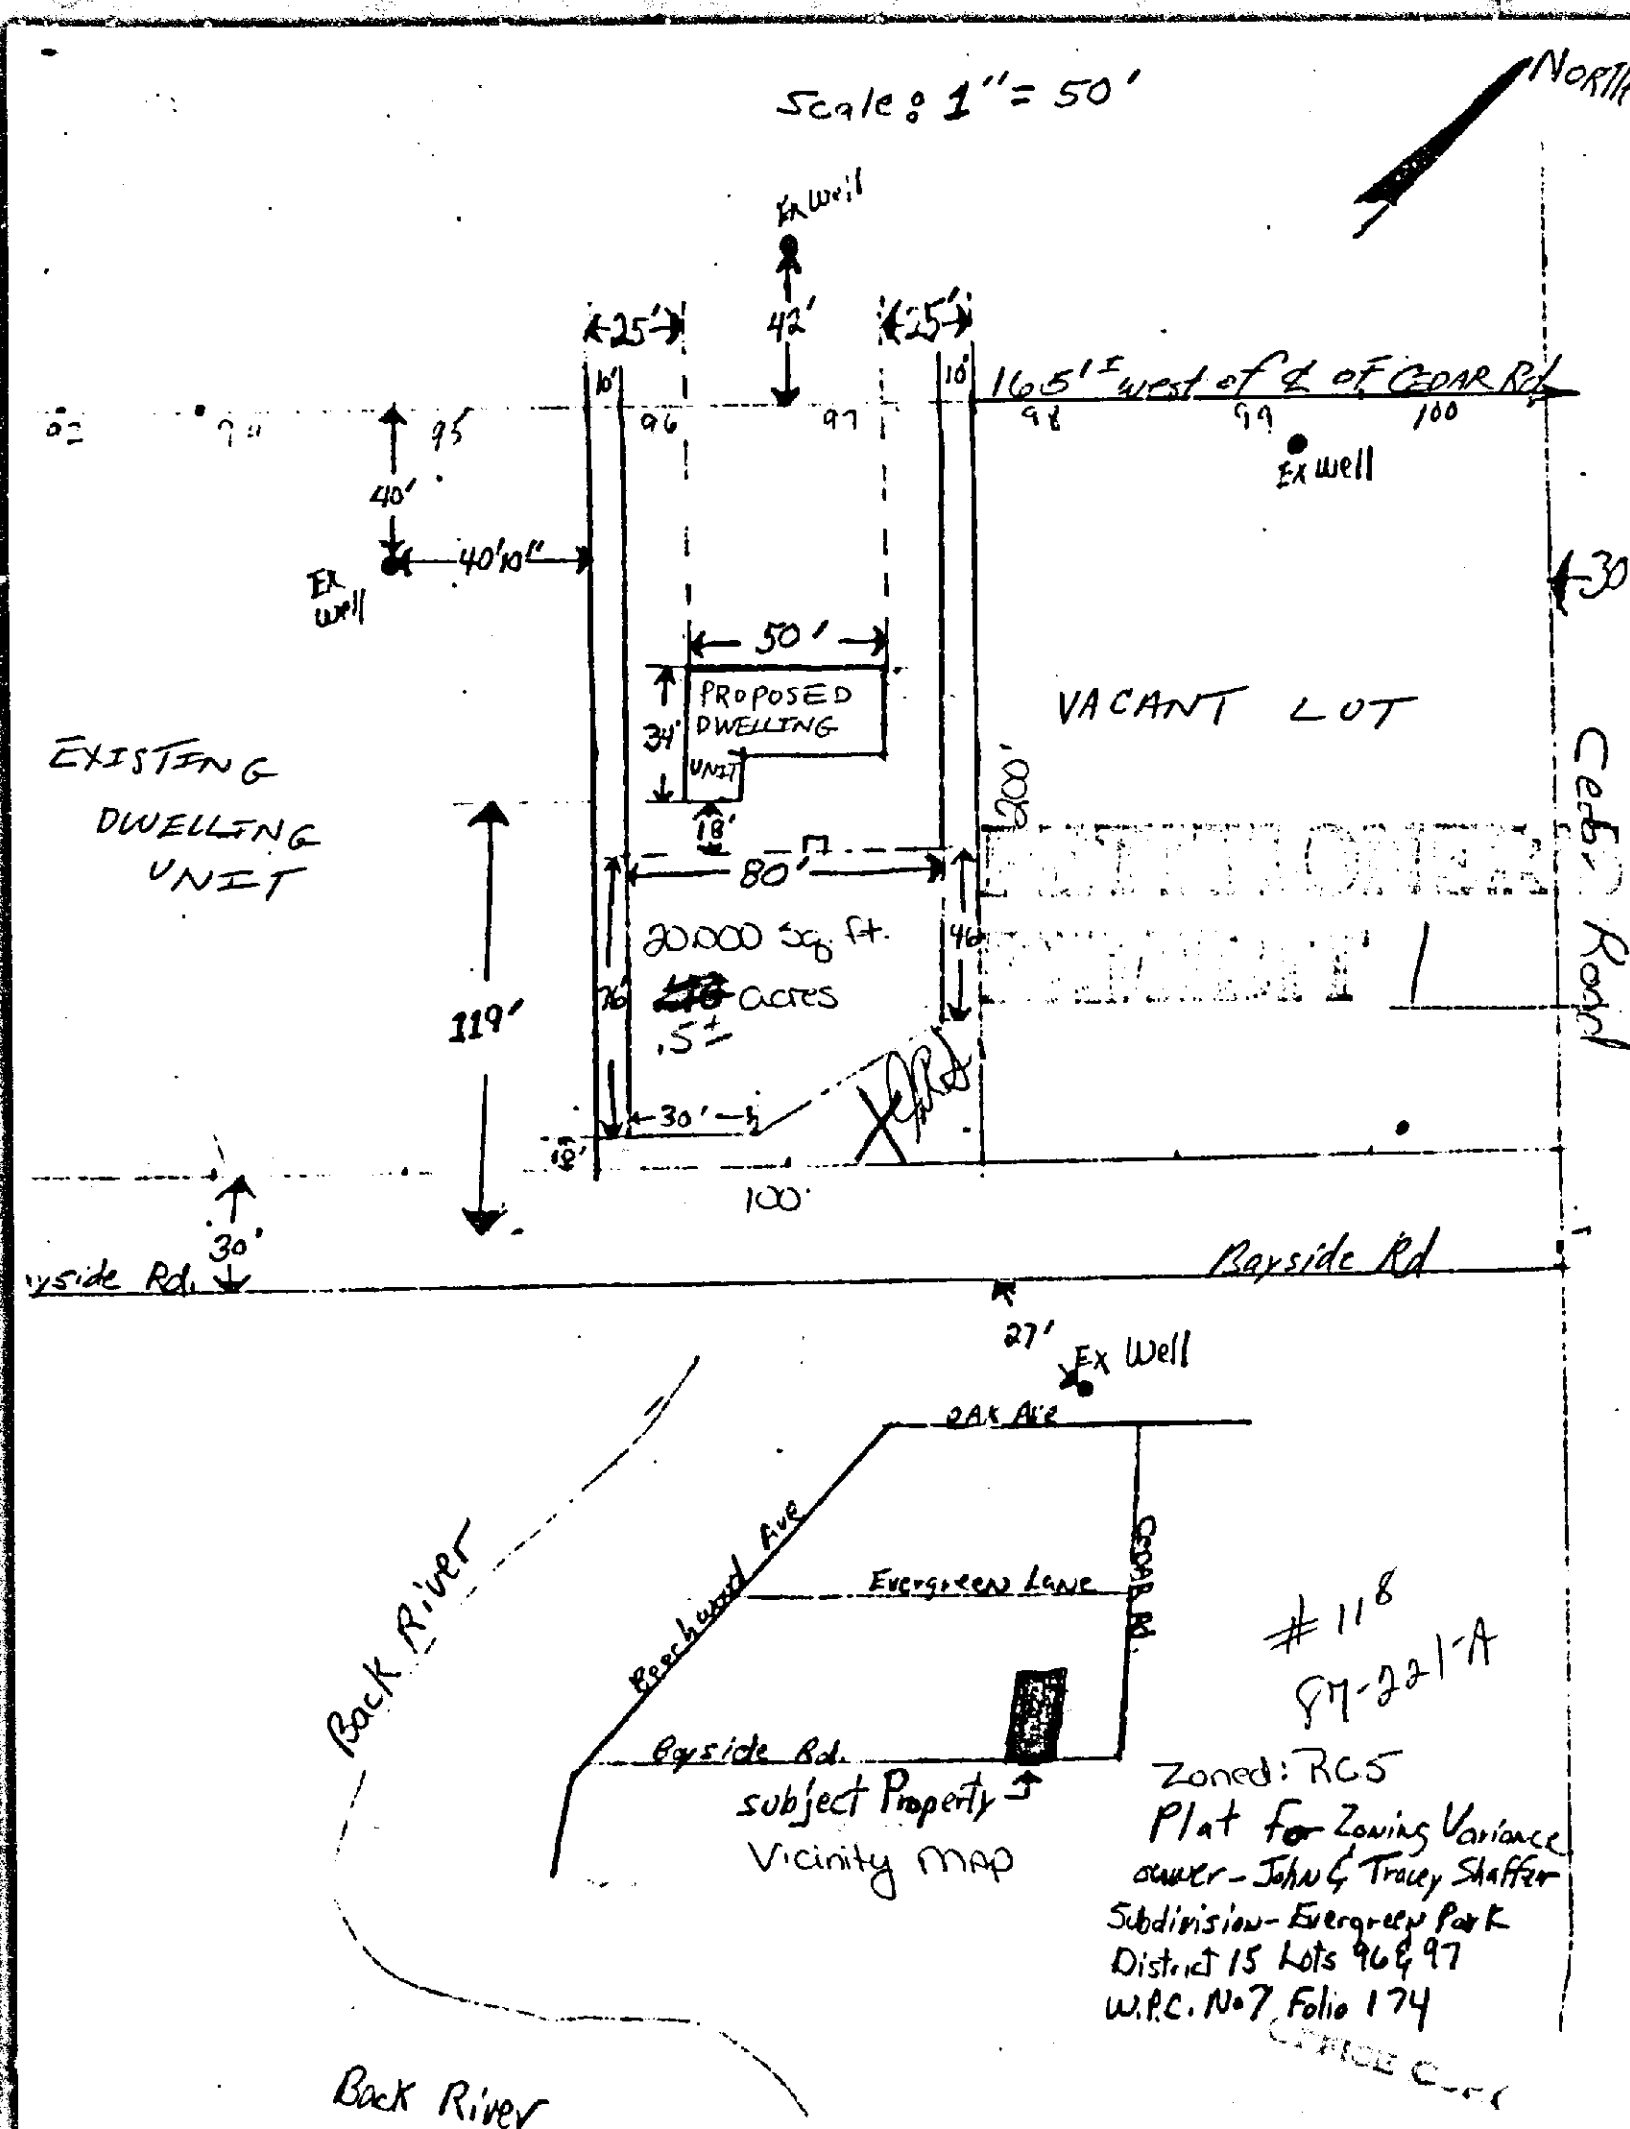 Scale: 1" = 50'
NORTH
Ex Well
42'
25'
25'
10'
10'
165'± west of ℄ of CEDAR Rd
95
96
97
98
99
100
Ex well
40'
40'10"
Ex
well
30
50'
PROPOSED
DWELLING
UNIT
34'
18'
VACANT LOT
200'
EXISTING
DWELLING
UNIT
80'
PETITIONER'S
EXHIBIT 1
Cedar Road
20000 sq. ft.
acres
.5±
76'
46'
119'
30'
18'
100'
30'
yside Rd.
Bayside Rd
27'
Ex Well
OAK Ave
Beechwood Ave
Evergreen Lane
CEDAR Rd.
Back River
Bayside Rd.
subject Property
Vicinity Map
#118
87-221-A
Zoned: RC5
Plat for Zoning Variance
owner - John & Tracey Shaffer
Subdivision - Evergreen Park
District 15 Lots 96 & 97
W.P.C. No 7 Folio 174
OFFICE COPY
Back River